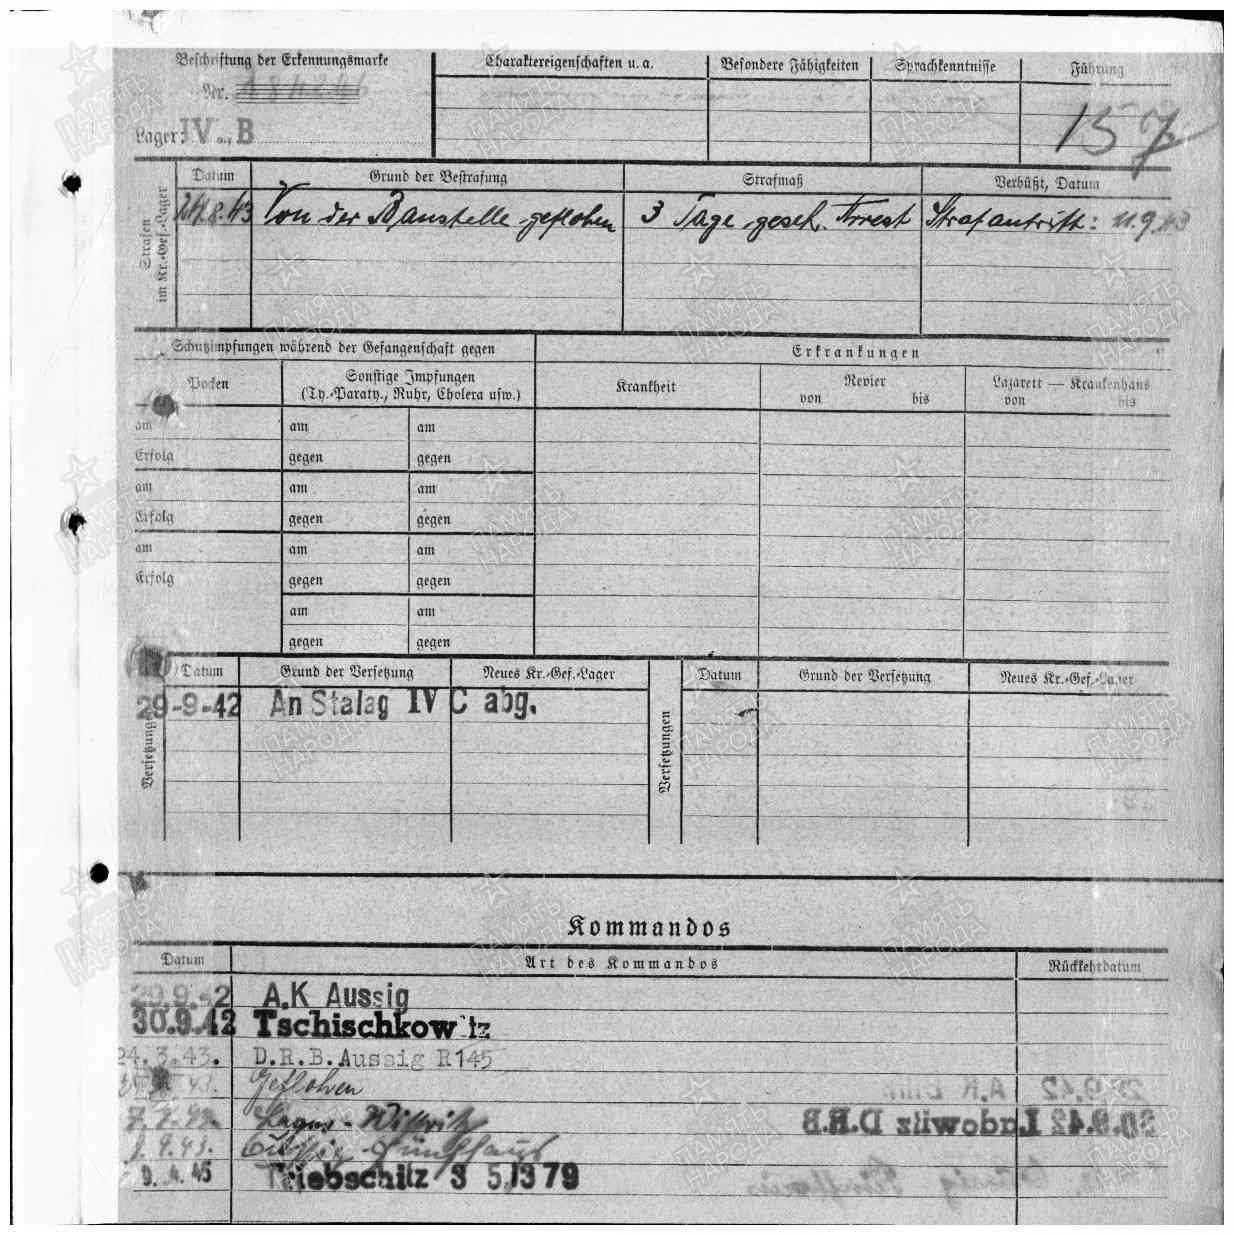 Beschriftung der Erkennungsmarke
Charaktereigenschaften u. a.
Besondere Fähigkeiten
Sprachkenntnisse
Führung
Nr. 184246
Lager: IV B
157
Strafen im Kr.-Gef.-Lager
Datum
Grund der Bestrafung
Strafmaß
Verbüßt, Datum
24.8.43 Von der Baustelle geflohen 3 Tage gesch. Arrest Strafantritt: 11.9.43
Schutzimpfungen während der Gefangenschaft gegen
Erkrankungen
Pocken
Sonstige Impfungen
(Ty.-Paraty., Ruhr, Cholera usw.)
Krankheit
Revier
von bis
Lazarett — Krankenhaus
von bis
am am am
Erfolg gegen gegen
am am am
Erfolg gegen gegen
am am am
Erfolg gegen gegen
am am
gegen gegen
Versetzungen
Datum Grund der Versetzung Neues Kr.-Gef.-Lager
Versetzungen
Datum Grund der Versetzung Neues Kr.-Gef.-Lager
29-9-42 An Stalag IV C abg.
Kommandos
Datum Art des Kommandos Rückkehrdatum
29.9.42 A.K Aussig
30.9.42 Tschischkowitz
24.3.43. D.R.B. Aussig R145
43. Geflohen
Lager - Wistritz
.9.43.
9.4.45 Triebschitz 3 5,1379
ПАМЯТЬ НАРОДА